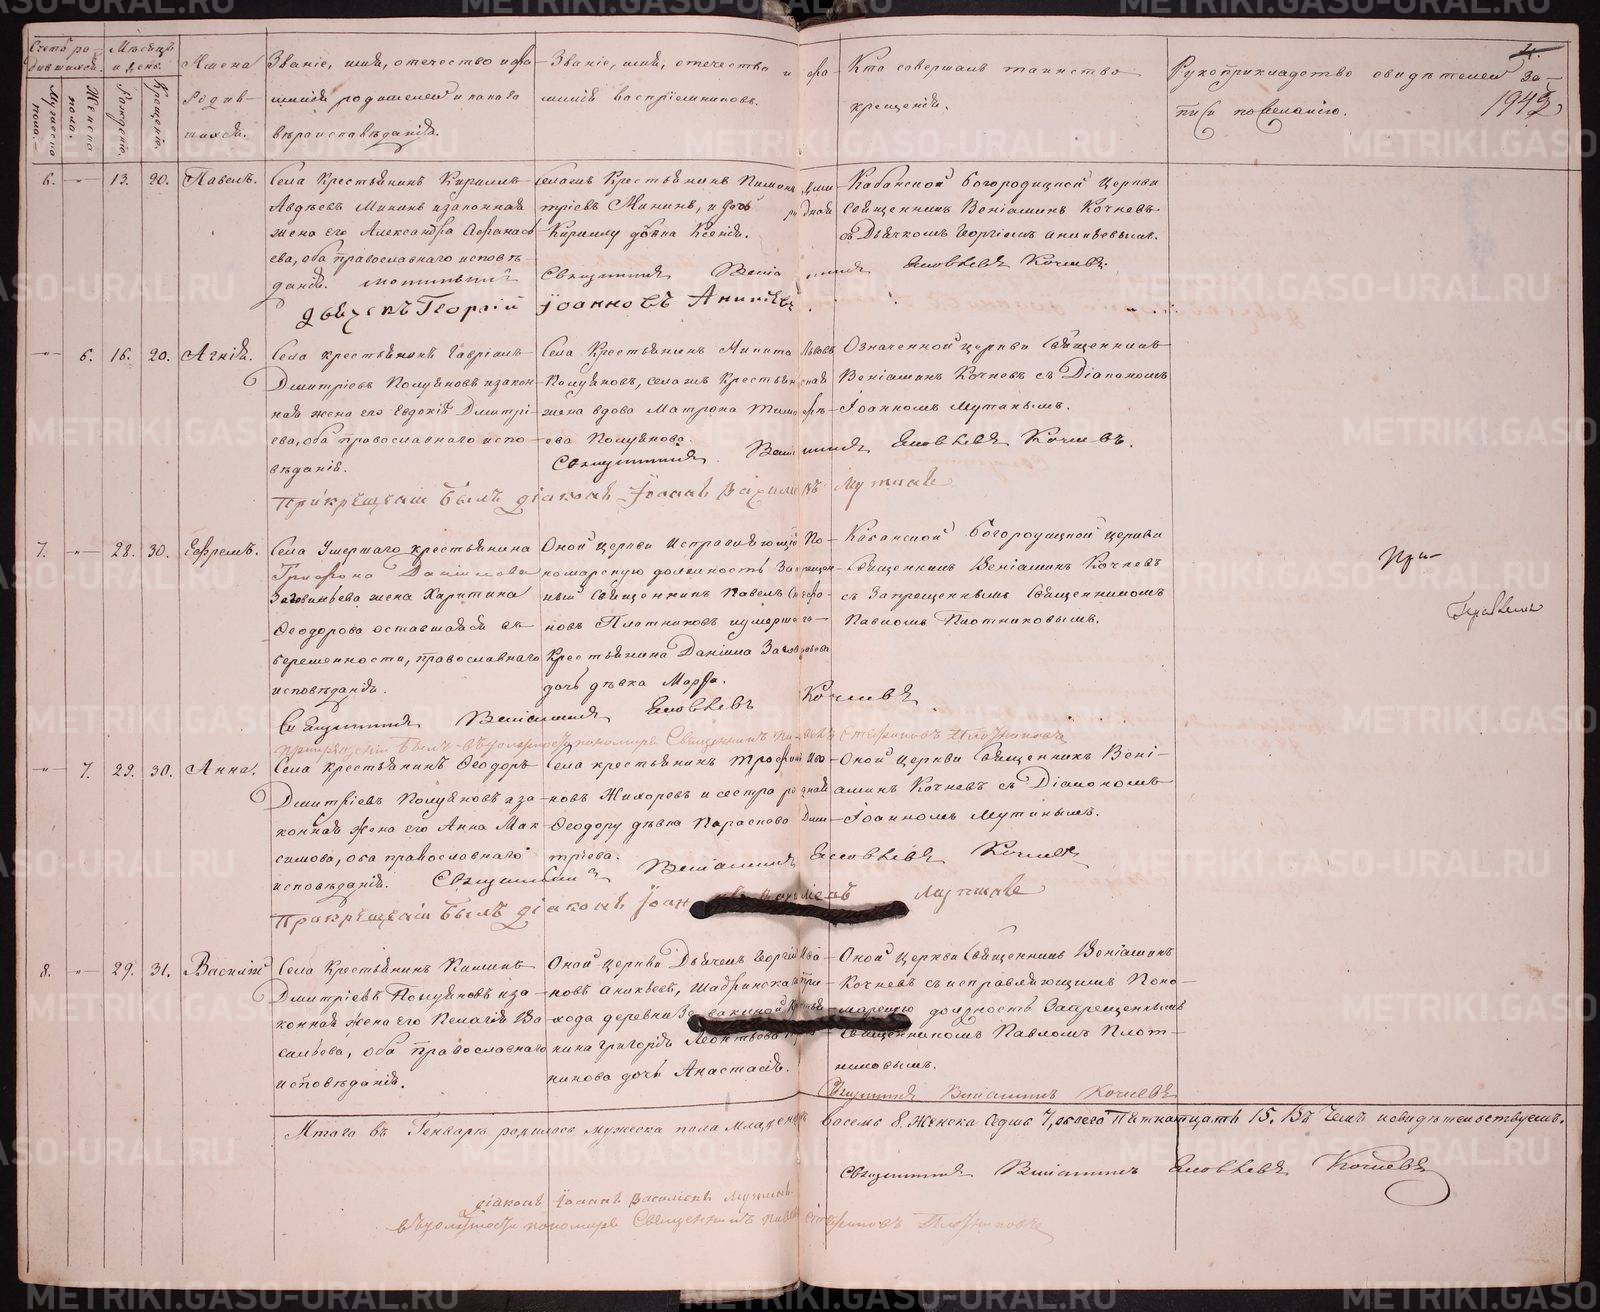 Счетъ ро-
дившихся.
Мужеска
пола.
Женска
пола.
Мѣсяцъ
и день.
Рожденія.
Крещенія.
Имена
родив-
шихся.
Званіе, имя, отечество и фа-
милія родителей и какого
вѣроисповѣданія.
Званіе, имя, отечество и фа-
милія воспріемниковъ.
Кто совершалъ таинство
крещенія.
Рукоприкладство свидѣтелей за-
писи по желанію.
4.
1942
6. -„- 13. 20. Павелъ.
Села Крестьянинъ Кириллъ
Авдѣевъ Мининъ и законная
жена его Александра Афанась
ева, оба православнаго исповѣ
данія.
селъ Крестьянинъ Пименъ Дми
тріевъ Мининъ, и дочь родная
Кириллу дѣвка Ксенія.
Казанской Богородицкой Церкви
Священникъ Веніаминъ Кочневъ
съ Дьячкомъ Георгіемъ Аникѣевымъ.
Священникъ Веніаминъ Яковлевъ Кочневъ.
дьячекъ Георгій Іоанновъ Аникіевъ
-„- 6. 16. 20. Агнія.
Села крестьянинъ Гавріилъ
Дмитріевъ Полуяновъ и закон-
ная жена его Евдокія Дмитрі-
ева, оба православнаго испо-
вѣданія.
Села Крестьянинъ Никита Львовъ
Полуяновъ, селамъ Крестьянская
жена вдова Матрона Тимофѣ-
ева Полуянова.
Означенной церкви Священникъ
Веніаминъ Кочневъ съ Діакономъ
Іоанномъ Мутинымъ.
Священникъ Веніаминъ Яковлевъ Кочневъ.
При крещеніи былъ діаконъ Іоаннъ Васильевъ Мутинъ
7. -„- 28. 30. Ефремъ.
Села Умершаго крестьянина
Трифона Даніилова
Заговиньева жена Харитина
Ѳеодорова оставшаяся въ
беременности, православнаго
исповѣданія.
Оной церкви Исправляющій По-
номарскую должность Запрещен-
ный Священникъ Павелъ Стефа-
новъ Плотниковъ и умершаго
Крестьянина Даніила
дочь дѣвка Марфа.
Казанской Богородицкой Церкви
Священникъ Веніаминъ Кочневъ
съ Запрещеннымъ Священникомъ
Павломъ Плотниковымъ.
Священникъ Веніаминъ Яковлевъ Кочневъ
При крещеніи былъ въ должности пономаря Священникъ Павелъ Стефановъ Плотниковъ
При-
-„- 7. 29. 30. Анна.
Села Крестьянинъ Ѳеодоръ
Дмитріевъ Полуяновъ и за-
конная жена его Анна Мак-
симова, оба православнаго
исповѣданія.
Села крестьянинъ Трофимъ Ива-
новъ Жихоревъ и сестра родная
Ѳеодору дѣвка Парасковья Дми-
тріева.
Оной церкви Священникъ Вені-
аминъ Кочневъ съ Діакономъ
Іоанномъ Мутинымъ.
Священникъ Веніаминъ Яковлевъ Кочневъ
При крещеніи былъ діаконъ Іоаннъ Васильевъ Мутинъ
8. -„- 29. 31. Василій
Села Крестьянинъ Пименъ
Дмитріевъ Полуяновъ и за-
конная жена его Пелагія Ва-
сильева, оба православнаго
исповѣданія.
Оной церкви Дьячекъ Георгій Ива-
новъ Аникьевъ, Шадринскаго при-
хода деревни Крестья
нина Григорія Леонтьева
никова дочь Анастасія.
Оной Церкви Священникъ Веніаминъ
Кочневъ съ исправляющимъ Поно-
марскую должность Запрещеннымъ
Священникомъ Павломъ Плот-
никовымъ.
Священникъ Веніаминъ Кочневъ
Итого въ Генварѣ родилось мужеска пола младенцевъ восемь 8. Женска Седмь 7, обоего Пятнатцать 15. Въ чемъ и свидѣтельствуемъ.
Священникъ Веніаминъ Яковлевъ Кочневъ
діаконъ Іоаннъ Васильевъ Мутинъ
въ должности пономаря Священникъ Павелъ Стефановъ Плотниковъ
METRIKI.GASO-URAL.RU